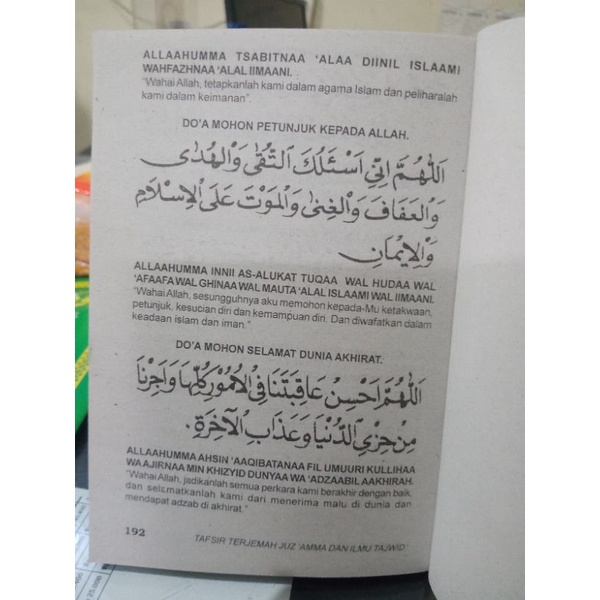 ALLAAHUMMA TSABITNAA ‘ALAA DIINIL ISLAAMI
WAHFAZHNAA ‘ALAL IIMAANI.
“Wahai Allah, tetapkanlah kami dalam agama Islam dan peliharalah
kami dalam keimanan”.
DO’A MOHON PETUNJUK KEPADA ALLAH.
اَللّٰهُمَّ اِنِّيْ اَسْئَلُكَ التُّقٰى وَالْهُدٰى
وَالْعَفَافَ وَالْغِنٰى وَالْمَوْتَ عَلَى الْاِسْلَامِ
وَالْاِيْمَانِ
ALLAAHUMMA INNII AS-ALUKAT TUQAA WAL HUDAA WAL
‘AFAAFA WAL GHINAA WAL MAUTA ‘ALAL ISLAAMI WAL IIMAANI.
“Wahai Allah, sesungguhnya aku memohon kepada-Mu ketakwaan,
petunjuk, kesucian diri dan kemampuan diri. Dan diwafatkan dalam
keadaan islam dan iman.”
DO’A MOHON SELAMAT DUNIA AKHIRAT.
اَللّٰهُمَّ اَحْسِنْ عَاقِبَتَنَا فِى الْاُمُوْرِ كُلِّهَا وَاَجِرْنَا
مِنْ خِزْيِ الدُّنْيَا وَعَذَابِ الْآخِرَةِ .
ALLAAHUMMA AHSIN ‘AAQIBATANAA FIL UMUURI KULLIHAA
WA AJIRNAA MIN KHIZYID DUNYAA WA ‘ADZAABIL AAKHIRAH.
“Wahai Allah, jadikanlah semua perkara kami berakhir dengan baik,
dan selamatkanlah kami dari menerima malu di dunia dan
mendapat adzab di akhirat.”
192
TAFSIR TERJEMAH JUZ ‘AMMA DAN ILMU TAJWID